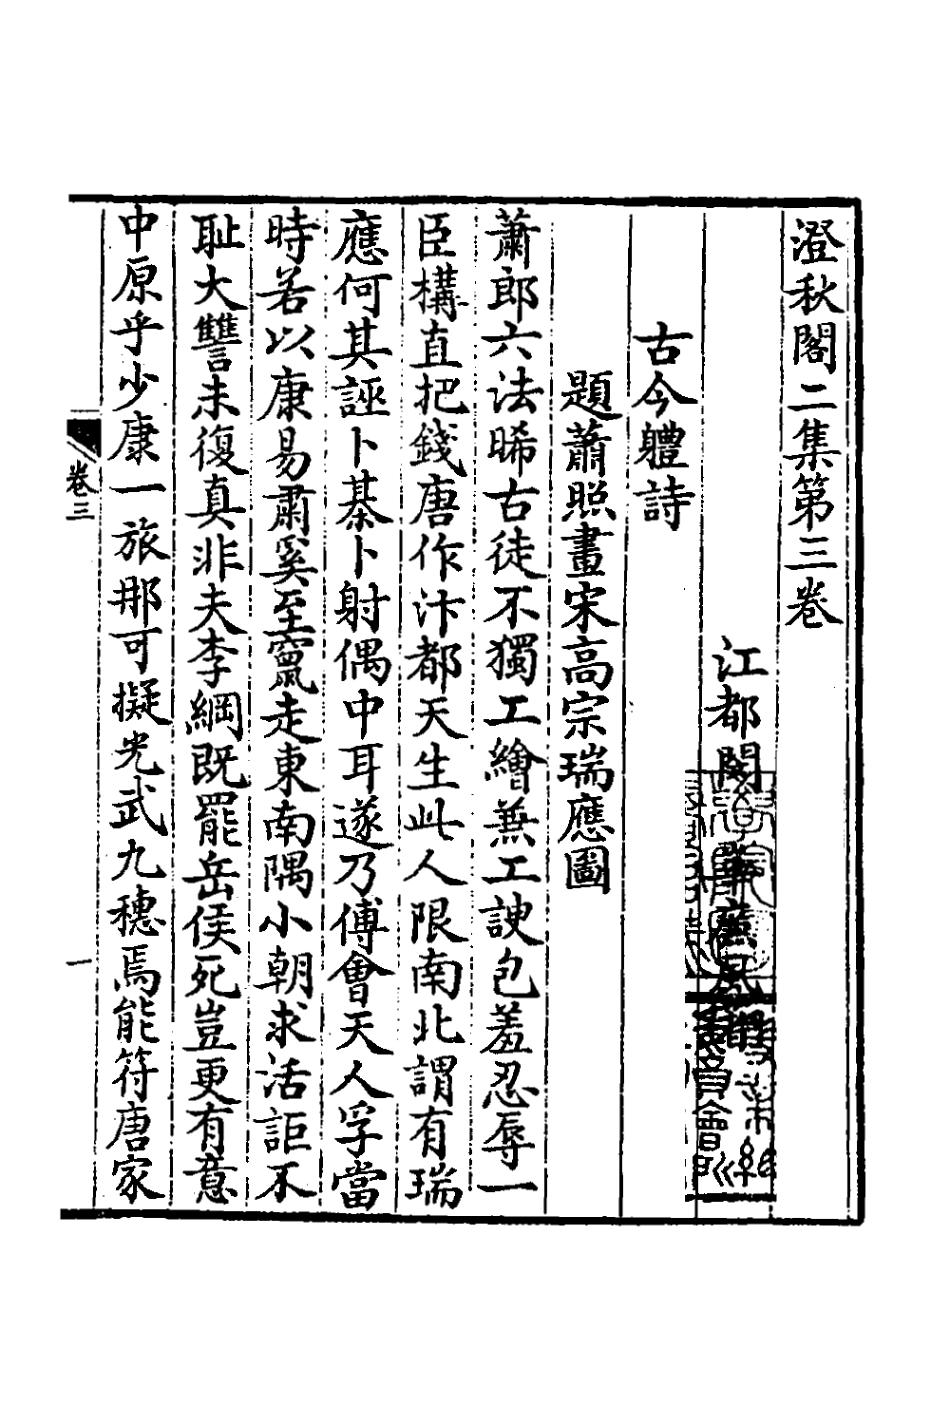 澄秋閣二集第三卷
江都閔華廉風
古今體詩
題蕭照畫宋高宗瑞應圖
蕭郎六法晞古徒不獨工繪兼工諛包羞忍辱一
臣構直把錢唐作汴都天生此人限南北謂有瑞
應何其誣卜棊卜射偶中耳遂乃傅會天人孚當
時若以康易肅奚至竄走東南隅小朝求活詎不
耻大讐未復真非夫李綱既罷岳侯死豈更有意
中原乎少康一旅那可擬光武九穗焉能符唐家
卷三
一